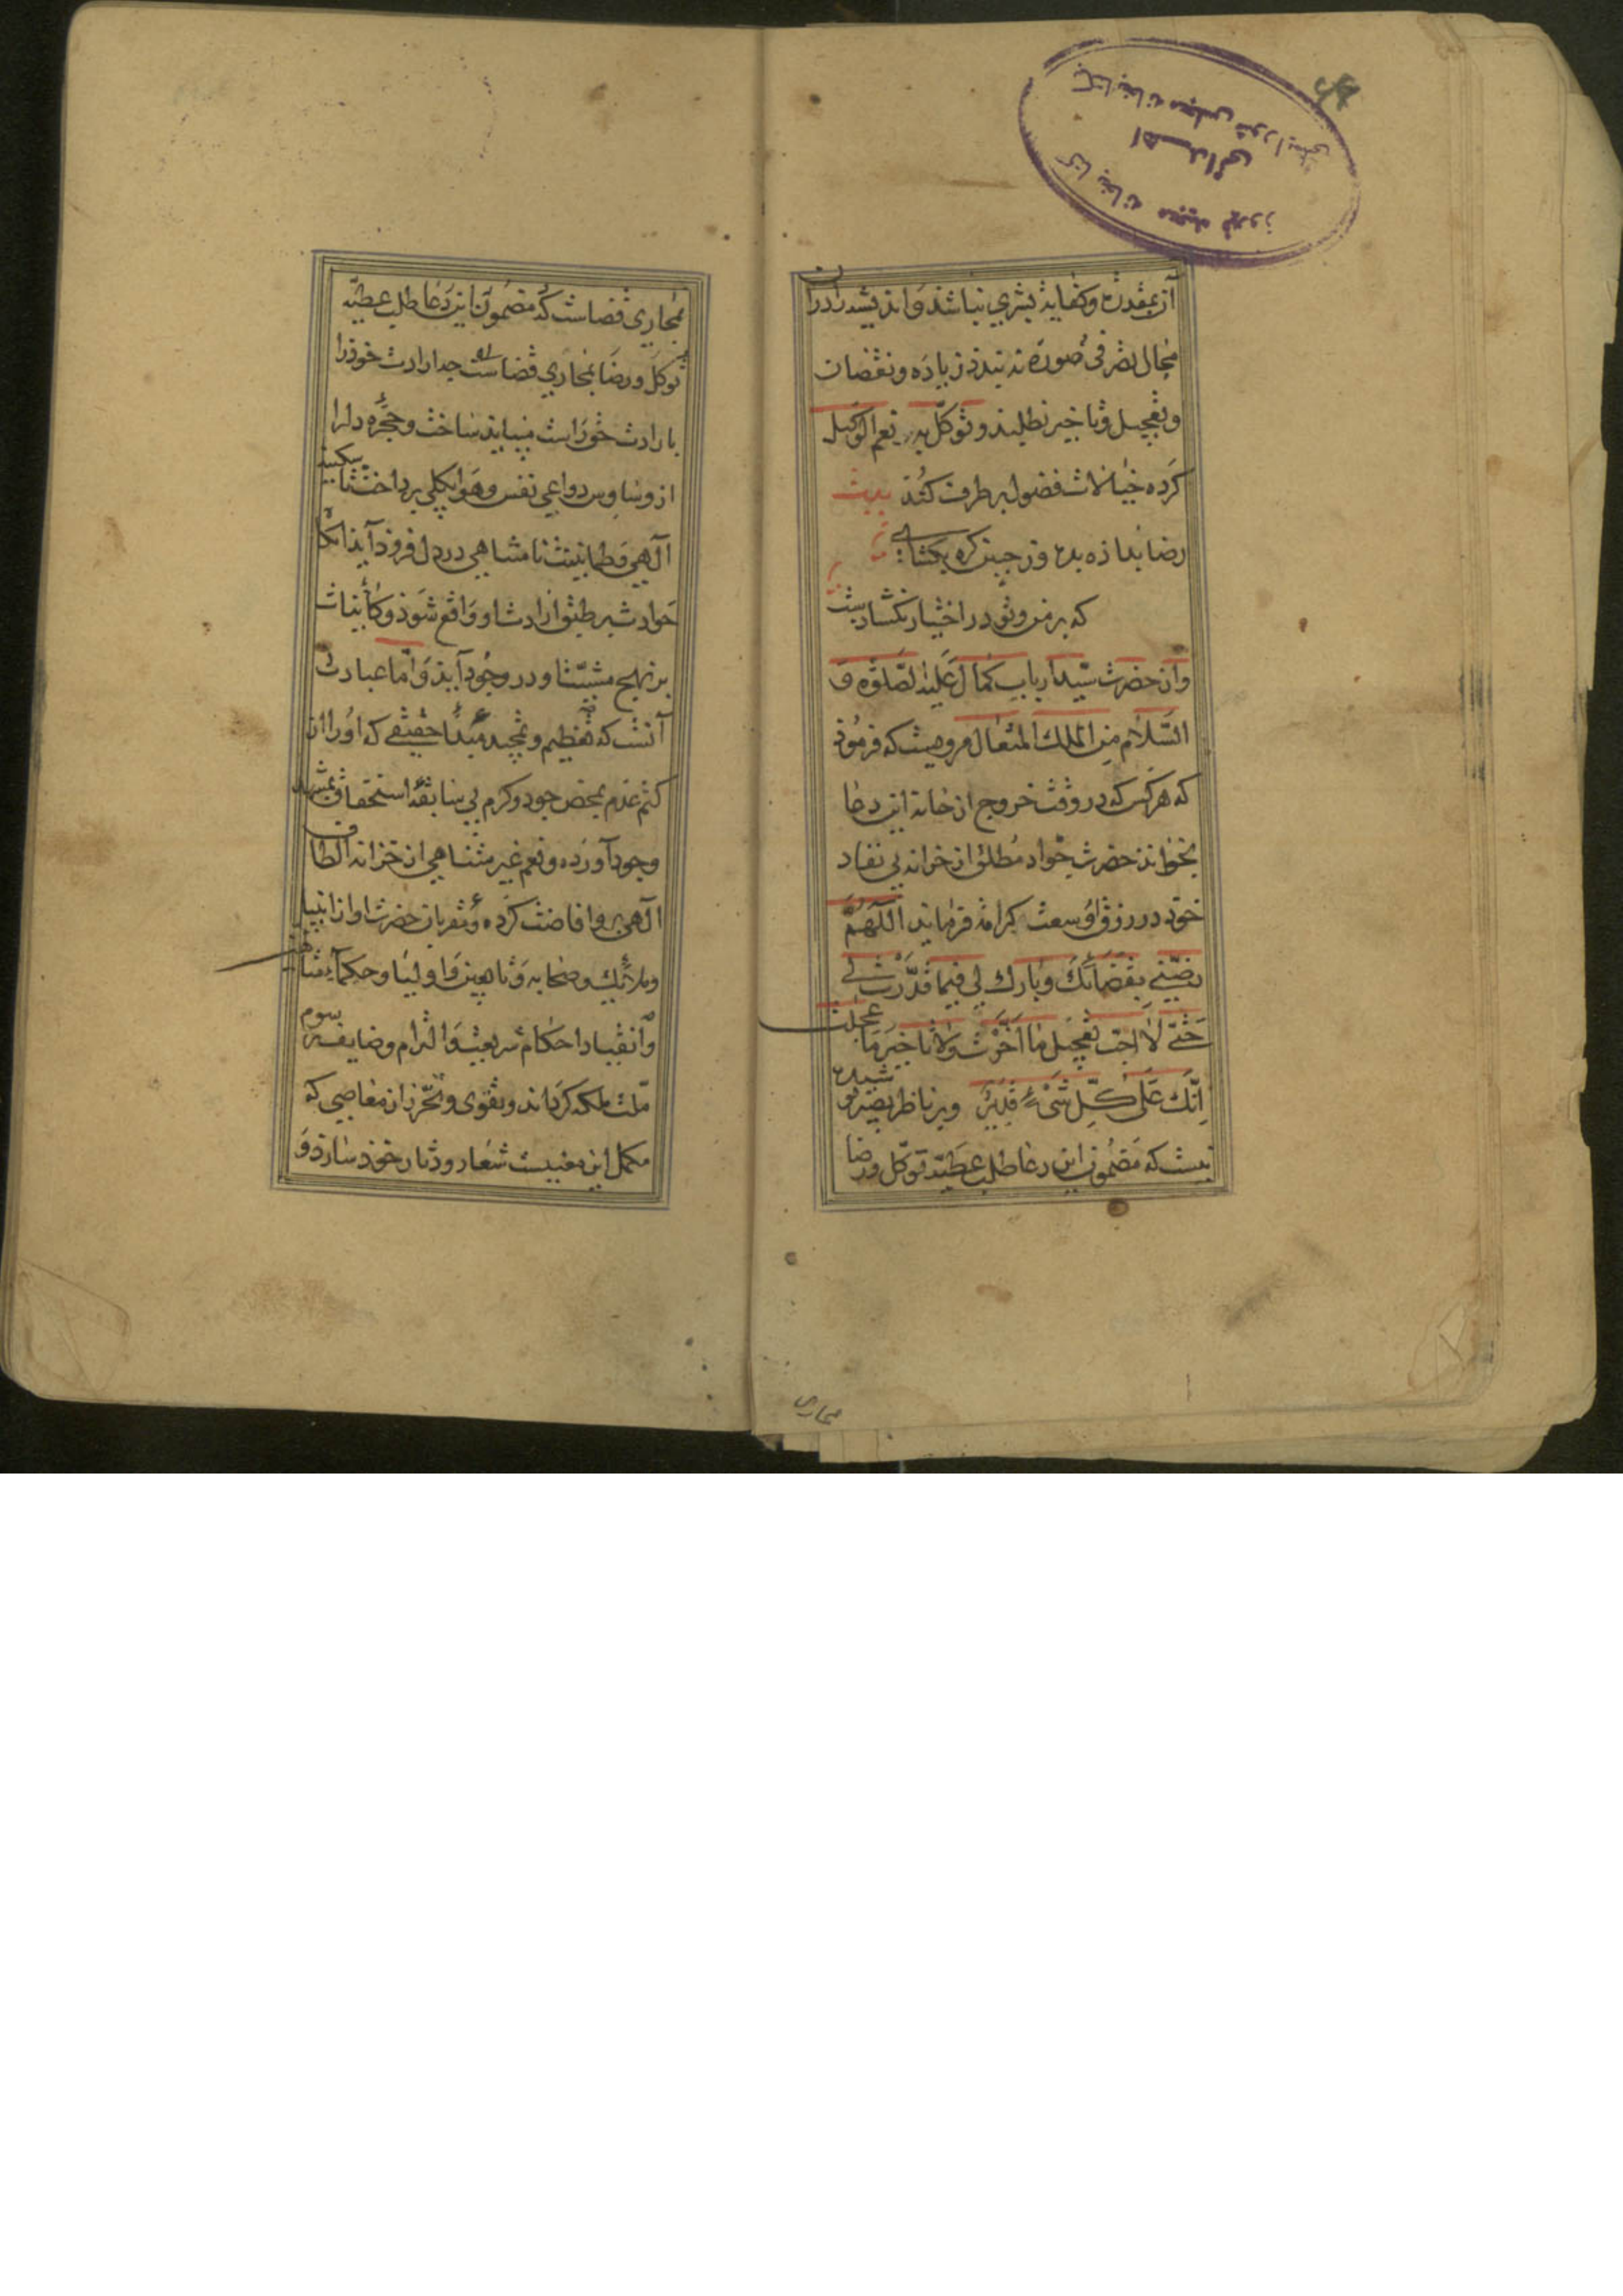 آن بمقدرة و كفاية بشري نباشد و انديشه را در ان
مجال تصرفی صورة نه بندد زياده و نقصان
و تعجيل و تاخير نطلبد و توكل بر نعم الوكيل
كرده خيالات فضول بر طرف كند بيت
رضا بداده بده وز جبين گره بگشاي
كه بر من و تو در اختيار نگشادست
و از حضرت سيد ارباب كمال عليه الصلوة و
السلام من الملك المتعال مرويست كه فرمود
كه هر كس كه در وقت خروج از خانه اين دعا
بخواند حضرت جواد مطلق از خزانه بي نفاد
خود در رزق او وسعت كرامة فرمايد اللّهُمَّ
رضّني بقضائك وبارك لي فيما قدّرت لي
حتّى لا احب تعجيل ما اخّرت ولا تاخير ما عجلت
انّك على كلّ شيء قدير و بر ناظر بصير پوشيده
نيست كه مضمون اين دعا طلب عطية توكل و رضا
مجاري
بمجاري قضاست كه مضمون اين دعا طلب عطيّه
توكل و رضا بمجاري قضاست چه ارادت خود را
با رادت خود راست ميبايد ساخت و حجره دل را
از وساوس دواعي نفس و هوا بكلي پرداخت تا سكينه
الهي و طمانينت نامتناهي در دل فرود آيد
حوادث بر طبق ارادت او واقع شود و كائنات
بر نهج مشيّت او در وجود آيد و امّا عبادت
آنست كه تعظيم و تمجيد مبدأ حقيقي كه او را از
كتم عدم بمحض جود و كرم بي سابقه استحقاق
وجود آورده و نعم غير متناهي از خزانه الطاف
الهي برو افاضت كرده و مقربان حضرت او از انبيا
و ملائكه و صحابه و تابعين و اوليا و حكما
و انقياد احكام شريعت و التزام وضايف رسوم
ملت ملكه گرداند و تقوى و تحرّز از معاصي كه
مكمل اين معنيست شعار و دثار خود سازد و